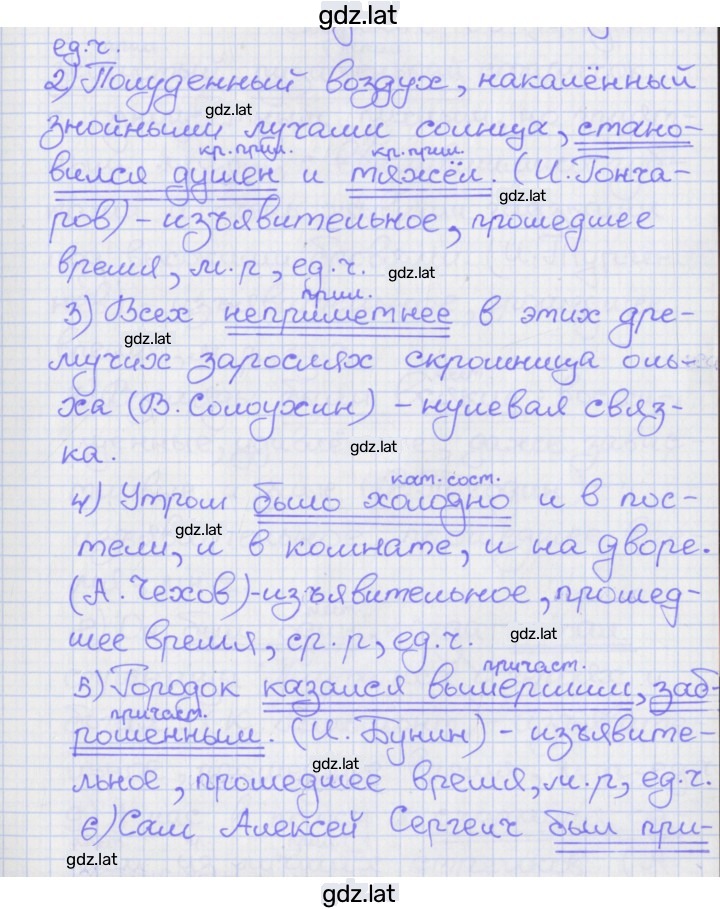 gdz.lat
ед.ч.
2) Полуденный воздух, накалённый
gdz.lat
знойными лучами солнца, стано-
кр.прил. кр.прил.
вился душен и тяжёл. (И. Гонча-
gdz.lat
ров) - изъявительное, прошедшее
время, м.р, ед.ч.
gdz.lat
прил.
3) Всех неприметнее в этих дре-
gdz.lat
мучих зарослях скромница оль-
ха (В. Солоухин) - нулевая связ-
ка.
gdz.lat
кат.сост.
4) Утром было холодно и в пос-
gdz.lat
тели, и в комнате, и на дворе.
(А. Чехов) - изъявительное, прошед-
шее время, ср.р, ед.ч.
gdz.lat
причаст.
5) Городок казался вымершим, заб-
причаст.
рошенным. (И. Бунин) - изъявите-
gdz.lat
льное, прошедшее время, м.р, ед.ч.
6) Сам Алексей Сергеич был при-
gdz.lat
gdz.lat